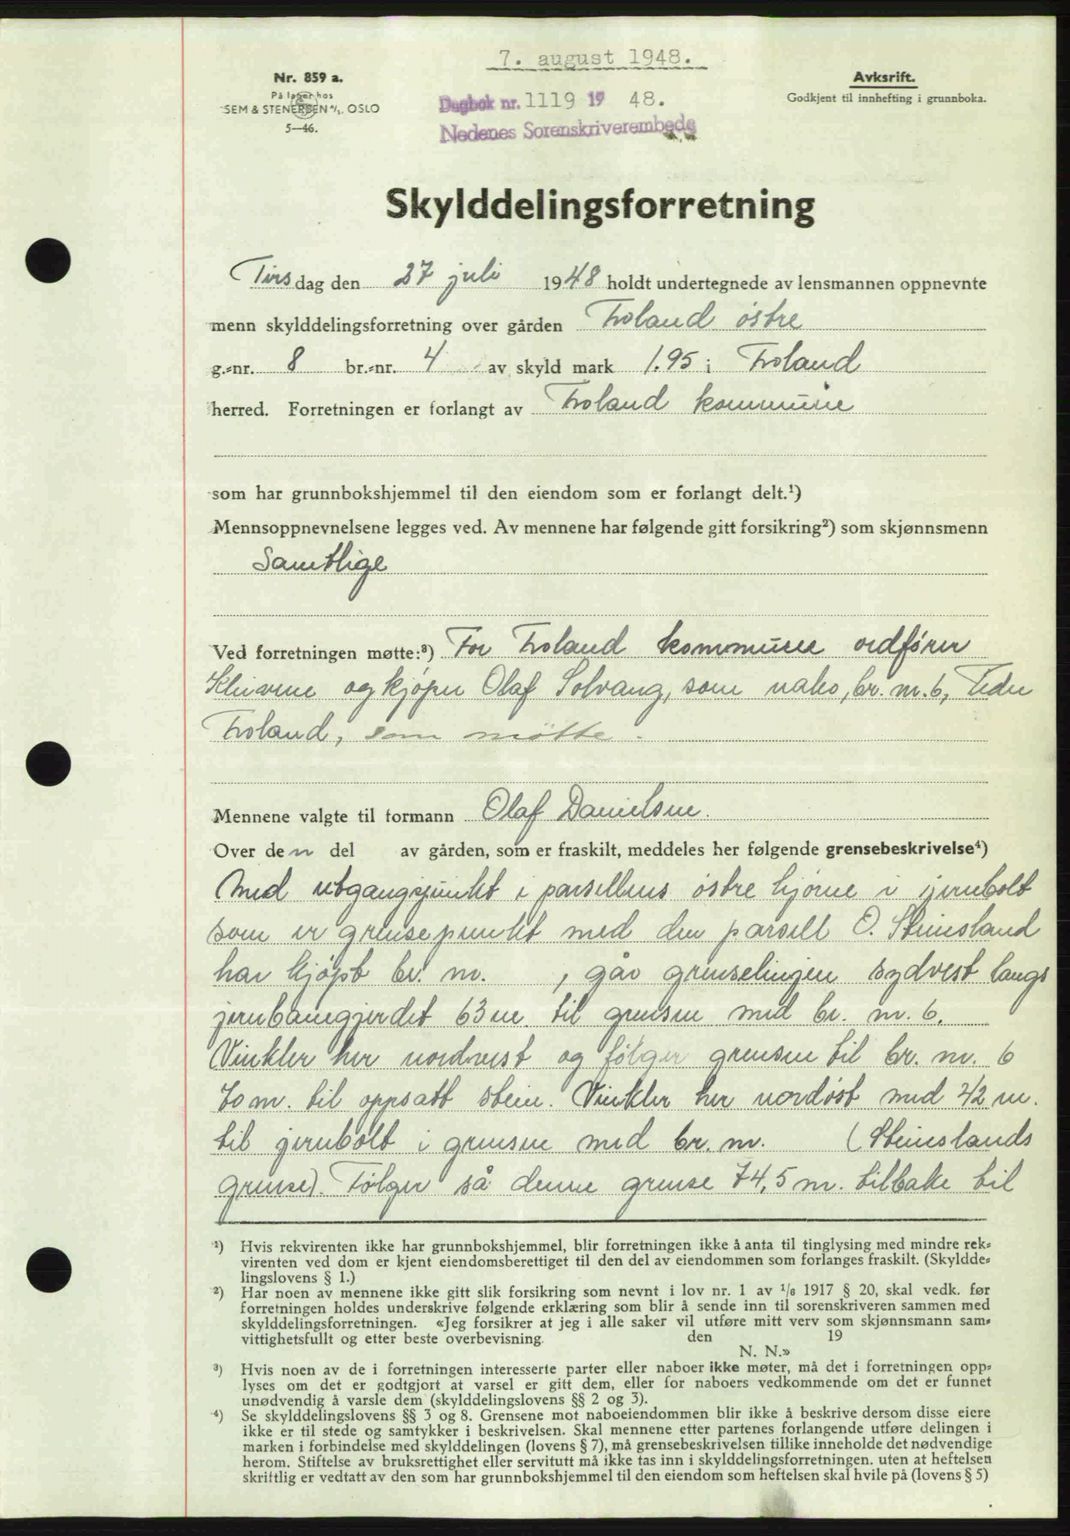 7. august 1948.
Nr. 859 a.
På lager hos
SEM & STENERSEN A/S, OSLO
5—46.
Dagbok nr. 1119 19 48.
Nedenes Sorenskriverembede
Avskrift.
Godkjent til innhefting i grunnboka.
Skylddelingsforretning
Tirsdag den 27 juli 1948 holdt undertegnede av lensmannen oppnevnte
menn skylddelingsforretning over gården Froland østre
g.-nr. 8 br.-nr. 4 av skyld mark 1.95 i Froland
herred. Forretningen er forlangt av Froland kommune
som har grunnbokshjemmel til den eiendom som er forlangt delt.¹)
Mennsoppnevnelsene legges ved. Av mennene har følgende gitt forsikring²) som skjønnsmenn
Samtlige
Ved forretningen møtte:³) For Froland kommune ordfører
og kjøper Olaf Solvang, som nabo, br. nr. 6, Peder
Froland, som møtte.
Mennene valgte til formann Olaf Danielsen.
Over den del av gården, som er fraskilt, meddeles her følgende grensebeskrivelse⁴)
Med utgangspunkt i parsellens østre hjørne i jernbolt
som er grensepunkt med den parsell O. Steinsland
har kjøpt br. nr. , går grenselinjen sydvest langs
jernbanegjerdet 63 m. til grensen med br. nr. 6.
Vinkler her nordvest og følger grensen til br. nr. 6
70 m. til oppsatt stein. Vinkler her nordøst med 42 m.
til jernbolt i grensen med br. nr. (Steinslands
grense). Følger så denne grense 74,5 m. tilbake til
¹) Hvis rekvirenten ikke har grunnbokshjemmel, blir forretningen ikke å anta til tinglysing med mindre rek-
virenten ved dom er kjent eiendomsberettiget til den del av eiendommen som forlanges fraskilt. (Skyldde-
lingslovens § 1.)
²) Har noen av mennene ikke gitt slik forsikring som nevnt i lov nr. 1 av 1/6 1917 § 20, skal vedk. før
forretningen holdes underskrive følgende erklæring som blir å sende inn til sorenskriveren sammen med
skylddelingsforretningen. «Jeg forsikrer at jeg i alle saker vil utføre mitt verv som skjønnsmann sam-
vittighetsfullt og etter beste overbevisning. den 19
N. N.»
³) Hvis noen av de i forretningen interesserte parter eller naboer ikke møter, må det i forretningen opp-
lyses om det er godtgjort at varsel er gitt dem, eller for naboers vedkommende om det er funnet
unødvendig å varsle dem (skylddelingslovens §§ 2 og 3).
⁴) Se skylddelingslovens §§ 3 og 8. Grensene mot naboeiendommen blir ikke å beskrive dersom disse eiere
ikke er til stede og samtykker i beskrivelsen. Skal mennene etter partenes forlangende utføre delingen i
marken i forbindelse med skylddelingen (lovens § 7), må grensebeskrivelsen tillike inneholde det nødvendige
herom. Stiftelse av bruksrettighet eller servitutt må ikke tas inn i skylddelingsforretningen. uten at heftelsen
skriftlig er vedtatt av den som har grunnbokshjemmel til den eiendom som heftelsen skal hvile på (lovens § 5)